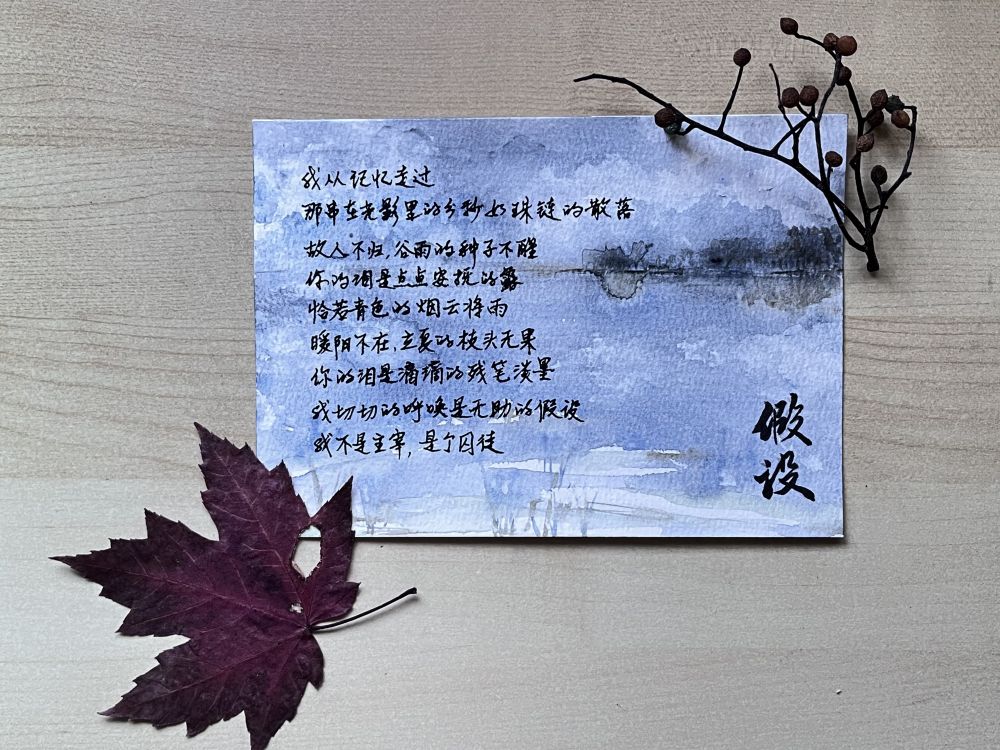 我从记忆走过
那串在光影里的分秒如珠链的散落
故人不归,谷雨的种子不醒
你的泪是点点安抚的露
恰若青色的烟云将雨
暖阳不在,立夏的枝头无果
你的泪是滴滴的残笔淡墨
我切切的呼唤是无助的假设
我不是主宰,是个囚徒
假设